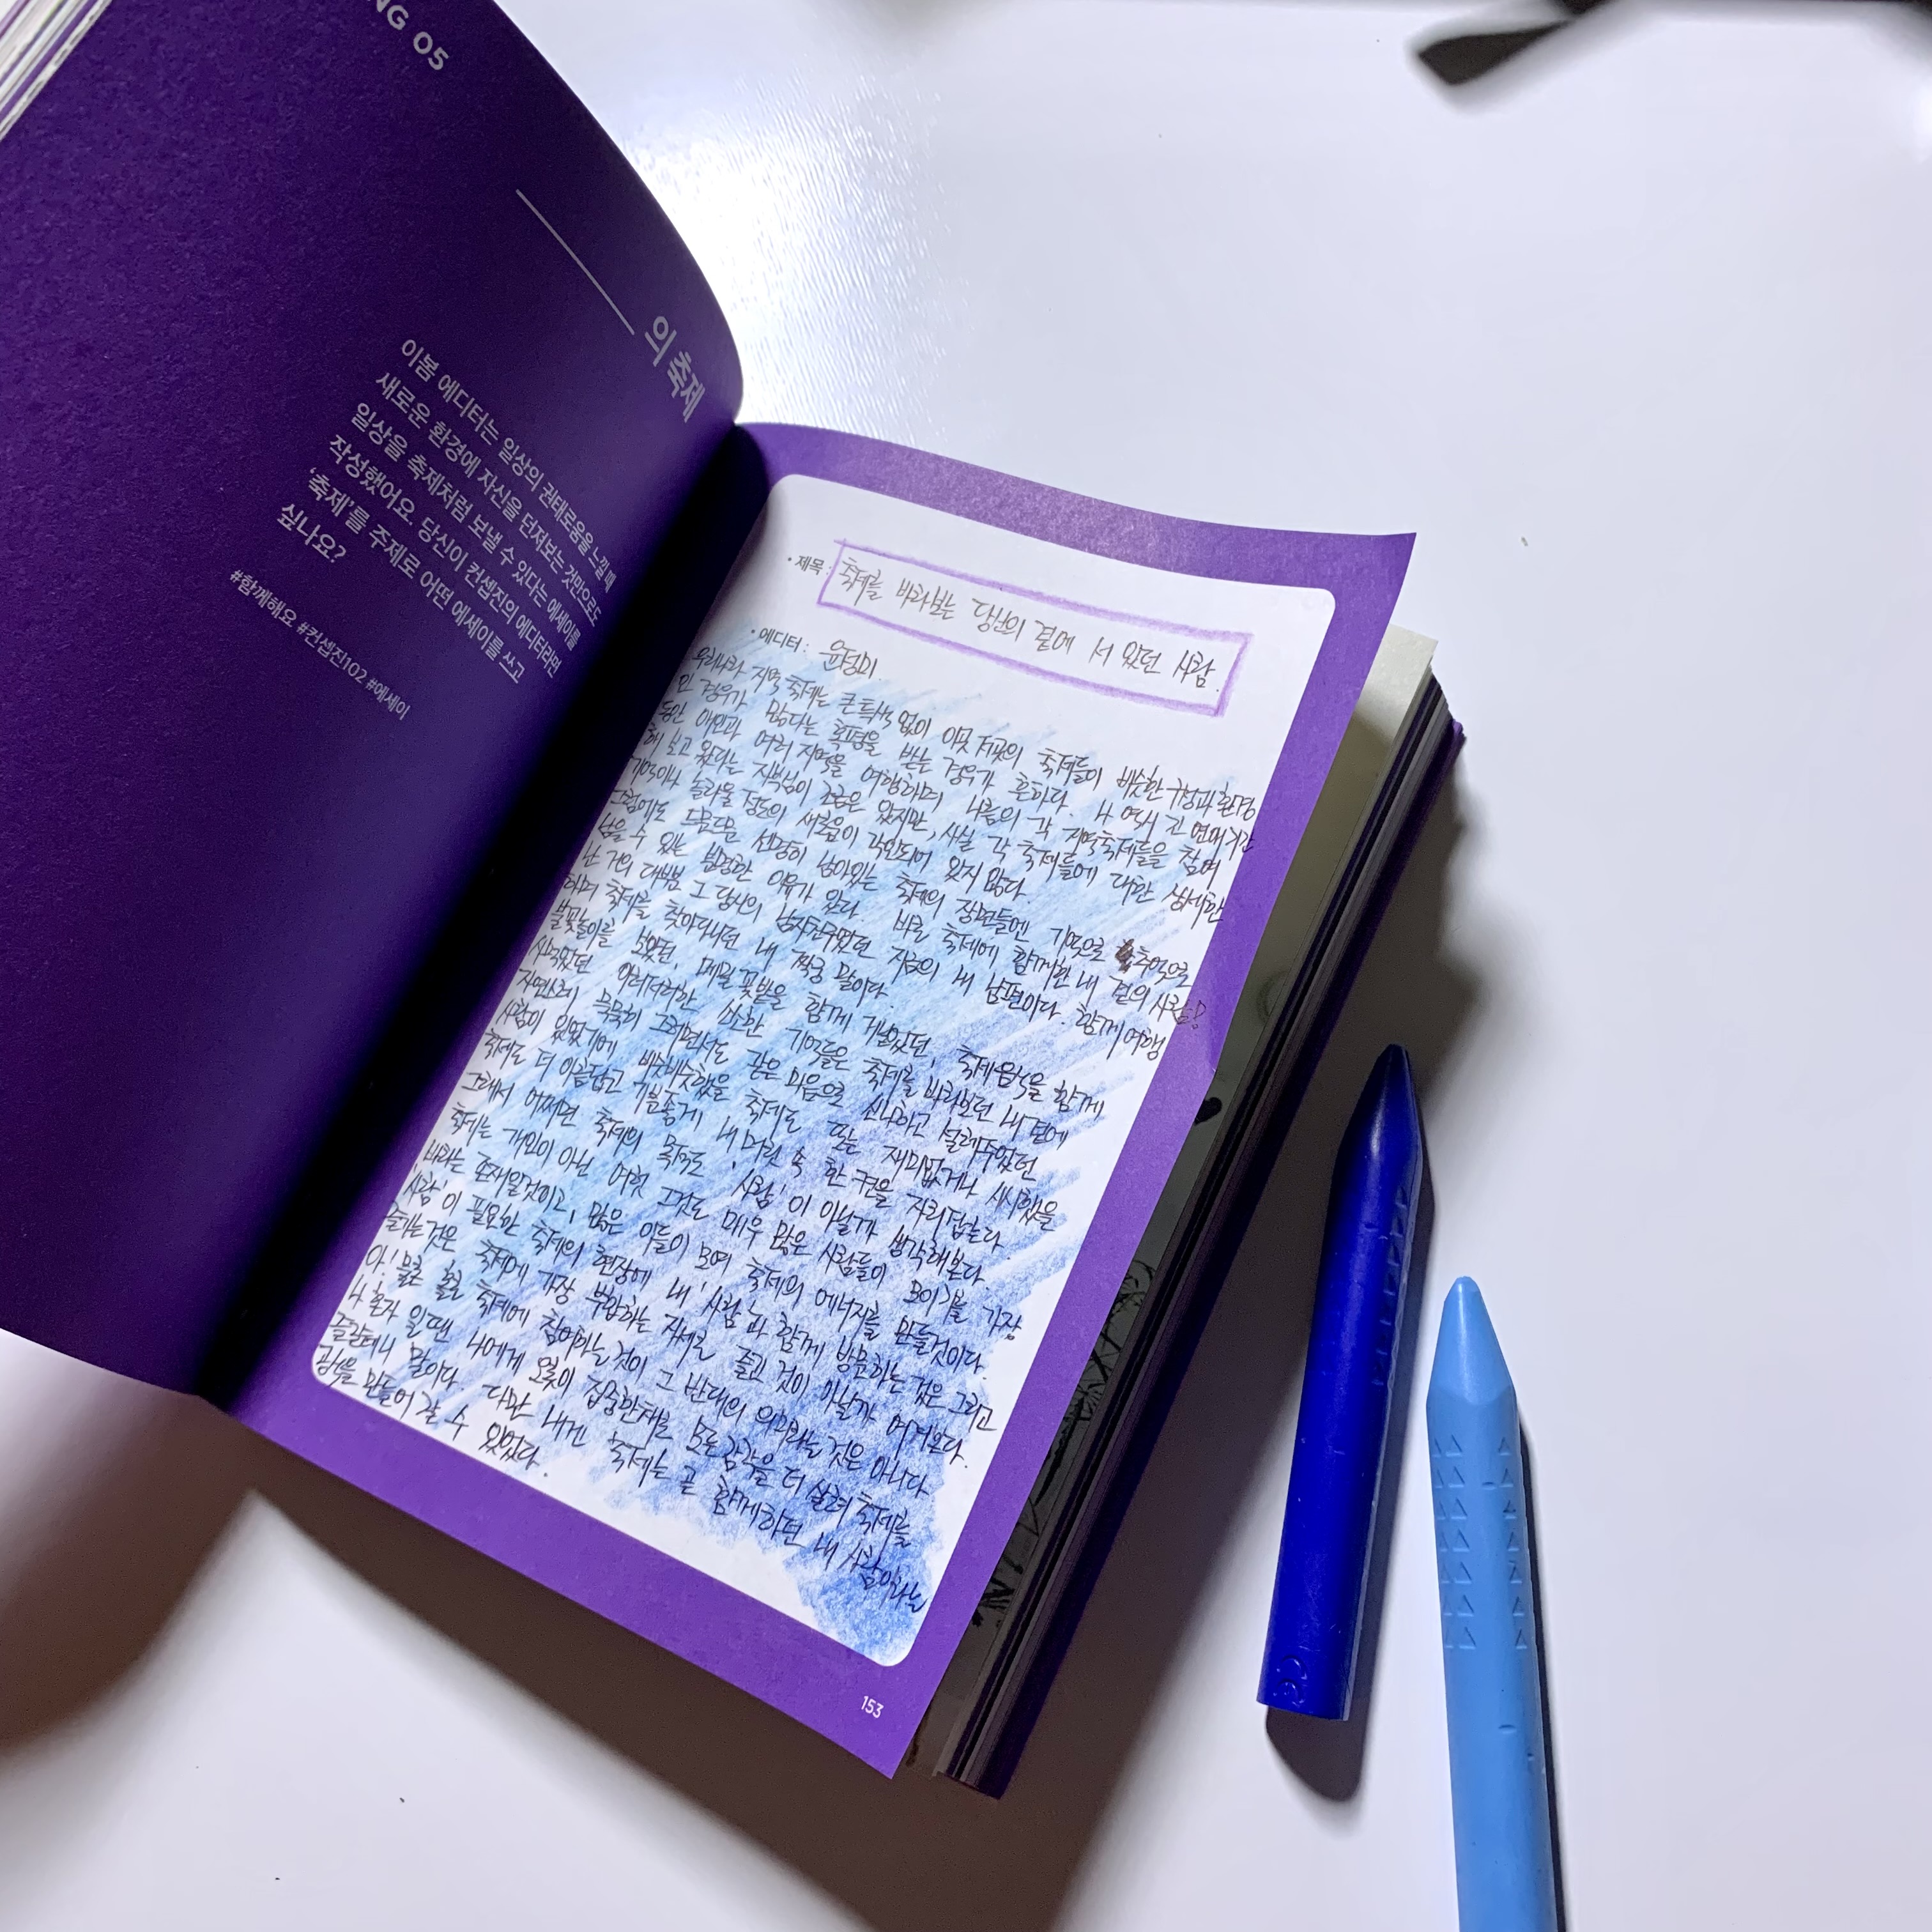 NG 05
의 축제
이봄 에디터는 일상의 권태로움을 느낄 때
새로운 환경에 자신을 던져보는 것만으로도
일상을 축제처럼 보낼 수 있다는 에세이를
작성했어요. 당신이 컨셉진의 에디터라면
‘축제’를 주제로 어떤 에세이를 쓰고
싶나요?
#함께해요 #컨셉진102 #에세이
• 제목 : 축제를 바라보는 당신의 곁에 서 있던 사람.
• 에디터 : 윤정미
우리나라 지역 축제는 큰 특색 없이 이곳 저곳의 축제들이 비슷한 구성과 환경
인 경우가 많다는 혹평을 받는 경우가 흔하다. 나 역시 긴 연애기간
동안 애인과 여러 지역을 여행하며 나름의 각 지역축제들을 참여
해 보고 왔다는 자부심이 조금은 있지만, 사실 각 축제들에 대한 상세한
기억이나 놀라울 정도의 새로움이 각인되어 있지 않다.
그럼에도 드문드문 선명히 남아있는 축제의 장면들엔 기억으로 추억으로
남을 수 있는 분명한 이유가 있다. 바로 축제에 함께한 내 곁의 사람들!
난 거의 대부분 그 당시의 남자친구였던 지금의 내 남편이다. 함께 여행
하며 축제를 찾아다니던 내 짝궁 말이다.
불꽃놀이를 보았던, 메밀 꽃밭을 함께 거닐었던, 축제음식을 함께
사먹었던 이러저러한 소소한 기억들은 축제를 바라보던 내 곁에
자연스레 묵묵히 그러면서도 같은 마음으로 신나하고 설레주었던
사람이 있었기에 비슷비슷했을 축제도 또는 재미없거나 시시했을
축제도 더 아름답고 기분좋게 내 머릿 속 한 켠을 자리잡는다.
그래서 어쩌면 축제의 목적도 '사람'이 아닐까 생각해본다.
축제는 개인이 아닌 여럿 그것도 매우 많은 사람들이 모이기를 가장
바라는 존재일것이고, 많은 이들이 모여 축제의 에너지를 만들것이다.
'사람'이 필요한 축제의 현장에 내 '사람'과 함께 방문하는 것은 그리고
즐기는 것은 축제에 가장 부합하는 자세로 즐긴 것이 아닐까 여겨본다.
아! 물론 홀로 축제에 참여하는 것이 그 반대의 의미라는 것은 아니다
나 혼자 일땐 나에게 오롯이 집중한채로 모든 감각을 더 살려 축제를
즐길테니 말이다. 다만 내겐 축제는 곧 함께하던 내 사람이라는
공식을 만들어 갈 수 있었다.
153